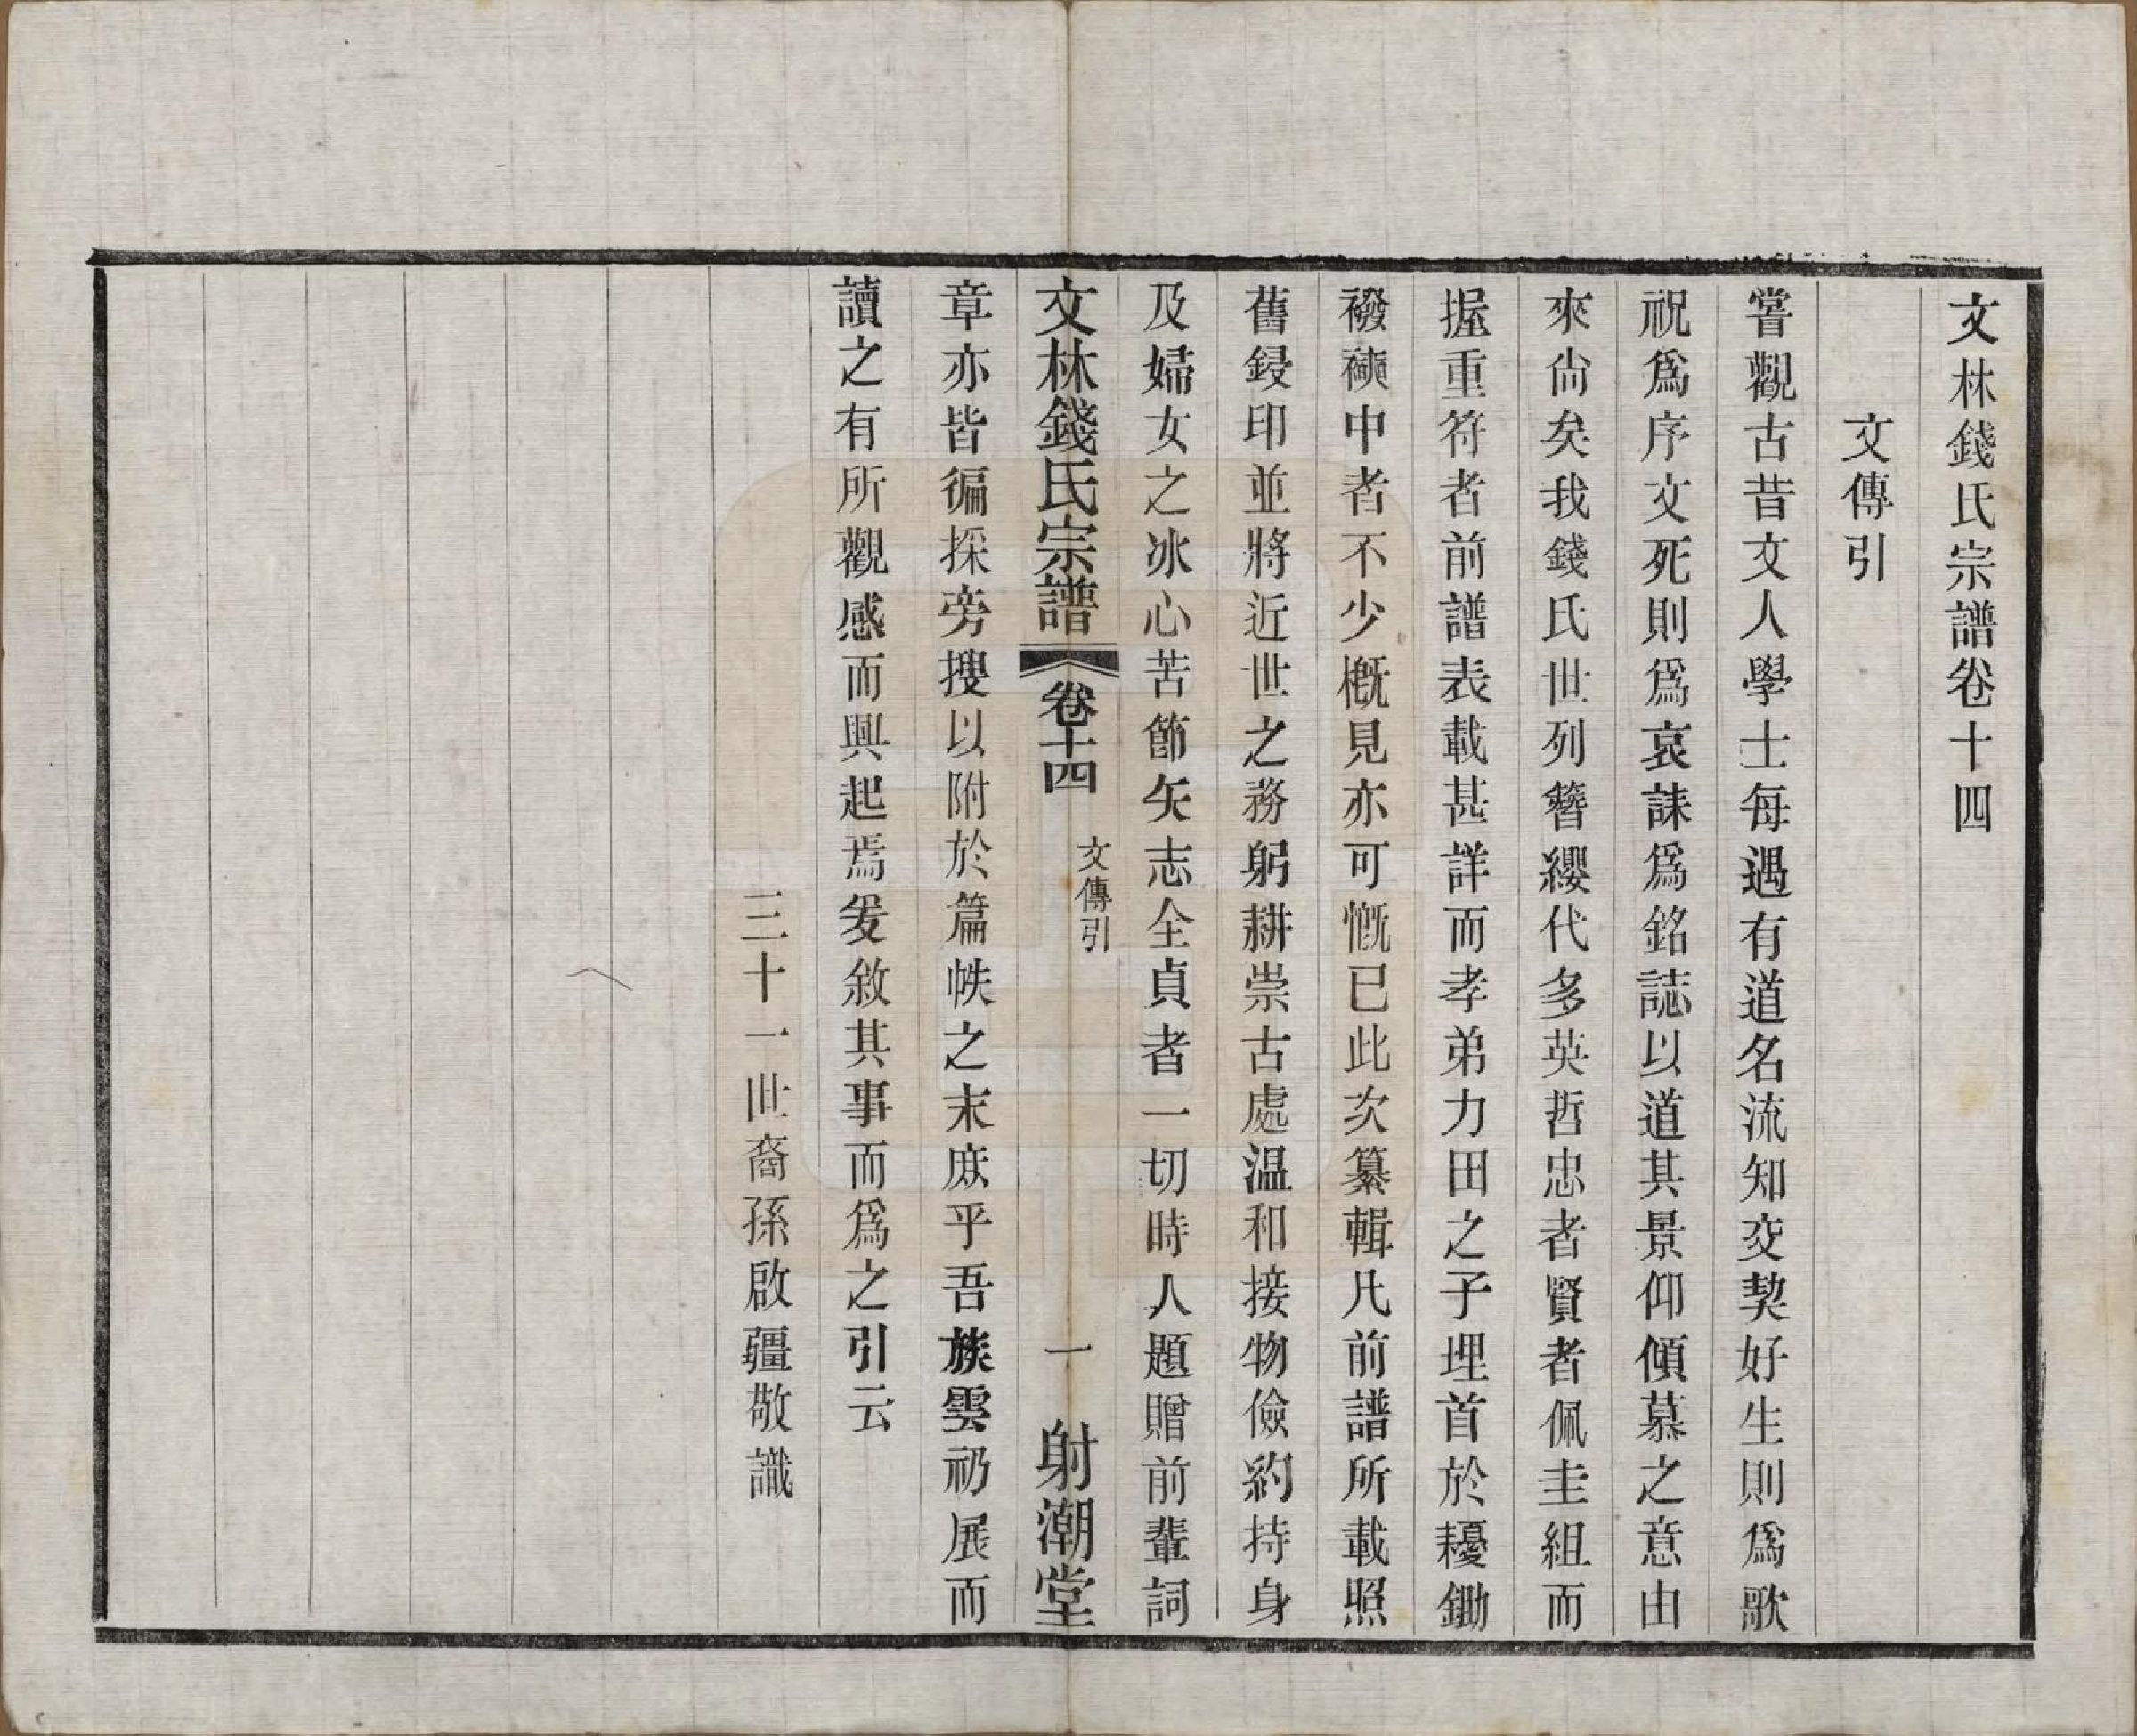 文林錢氏宗譜卷十四
文傳引
嘗觀古昔文人學士每遇有道名流知交契好生則爲歌
祝爲序文死則爲哀誄爲銘誌以道其景仰傾慕之意由
來尙矣我錢氏世列簪纓代多英哲忠者賢者佩圭組而
握重符者前譜表載甚詳而孝弟力田之子埋首於耰鋤
襏襫中者不少槪見亦可慨已此次纂輯凡前譜所載照
舊鋟印並將近世之務躬耕崇古處溫和接物儉約持身
及婦女之冰心苦節矢志全貞者一切時人題贈前輩詞
文林錢氏宗譜 卷十四 文傳引 一 射潮堂
章亦皆徧採旁搜以附於篇帙之末庶乎吾族雲礽展而
讀之有所觀感而興起焉爰敘其事而爲之引云
三十一世裔孫啟疆敬識